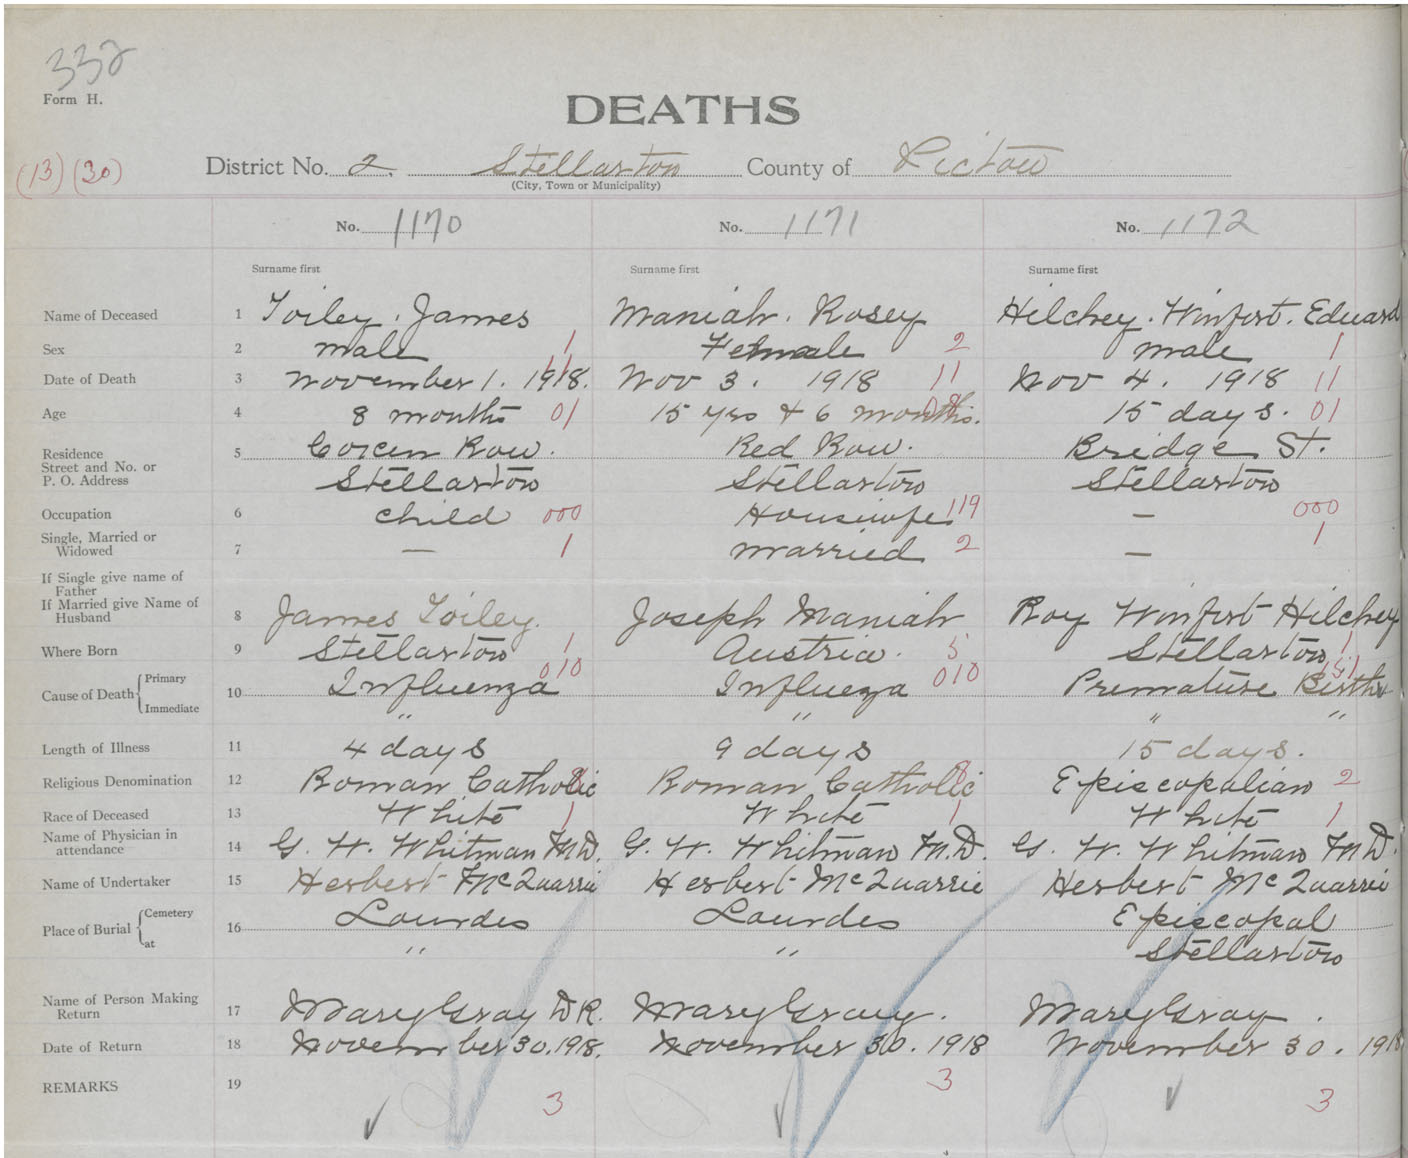 332
Form H.
DEATHS
(13) (30) District No. 2. Stellarton County of Pictou
(City, Town or Municipality)
No. 1170 No. 1171 No. 1172
Surname first Surname first Surname first
Name of Deceased 1 Toiley. James Maniah. Rosey Hilchey. Winfort. Edward
Sex 2 male 1 Female 2 male 1
Date of Death 3 November 1. 1918. 11 Nov 3. 1918 11 Nov 4. 1918 11
Age 4 8 months 01 15 yrs & 6 months. 15 days. 01
Residence
Street and No. or
P. O. Address 5 Row. Red Row. Bridge St.
Stellarton Stellarton Stellarton
Occupation 6 child 000 Housewife 119 – 000
Single, Married or
Widowed 7 – 1 married 2 – 1
If Single give name of
Father
If Married give Name of
Husband 8 James Toiley. Joseph Maniah Roy Winfort Hilchey
Where Born 9 Stellarton 1 Austria. 5 Stellarton 1
Cause of Death { Primary Immediate 10 Influenza 010 Influeza 010 Premature Birth 151
" " " "
Length of Illness 11 4 days 9 days 15 days.
Religious Denomination 12 Roman Catholic 8 Roman Catholic 8 Episcopalian 2
Race of Deceased 13 White 1 White 1 White 1
Name of Physician in
attendance 14 G. W. Whitman M.D. G. W. Whitman M.D. G. W. Whitman M.D.
Name of Undertaker 15 Herbert McQuarrie Herbert McQuarrie Herbert McQuarrie
Place of Burial { Cemetery at 16 Lourdes Lourdes Episcopal
" " Stellarton
Name of Person Making
Return 17 Mary Gray D R. Mary Gray. Mary Gray.
Date of Return 18 November 30. 1918. November 30. 1918 November 30. 1918
REMARKS 19 3 3 3